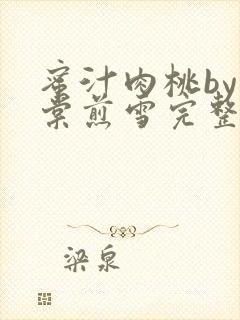 蜜汁肉桃by
棠煎雪完整
梁泉